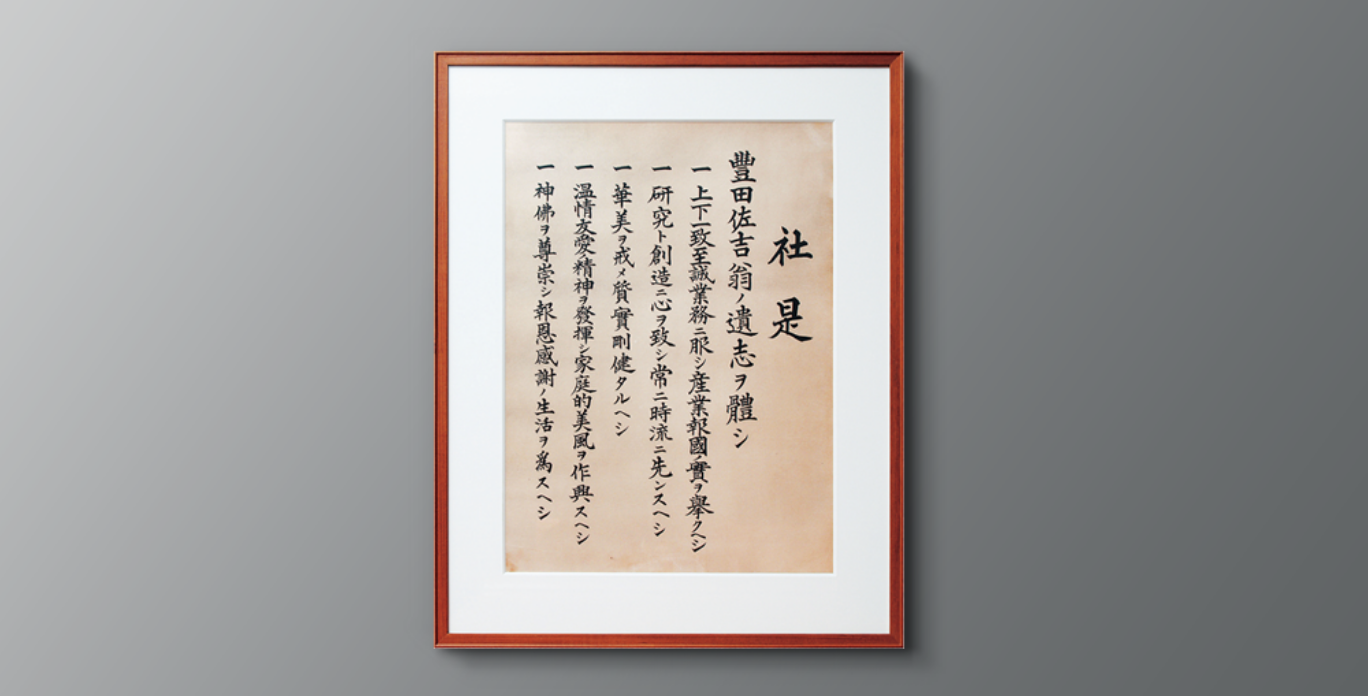 社是
豐田佐吉翁ノ遺志ヲ體シ
一上下一致至誠業務ニ服シ産業報國ノ實ヲ擧クヘシ
一研究ト創造ニ心ヲ致シ常ニ時流ニ先ンスヘシ
一華美ヲ戒メ質實剛健タルヘシ
一溫情友愛ノ精神ヲ發揮シ家庭的美風ヲ作興スヘシ
一神佛ヲ尊崇シ報恩感謝ノ生活ヲ爲スヘシ